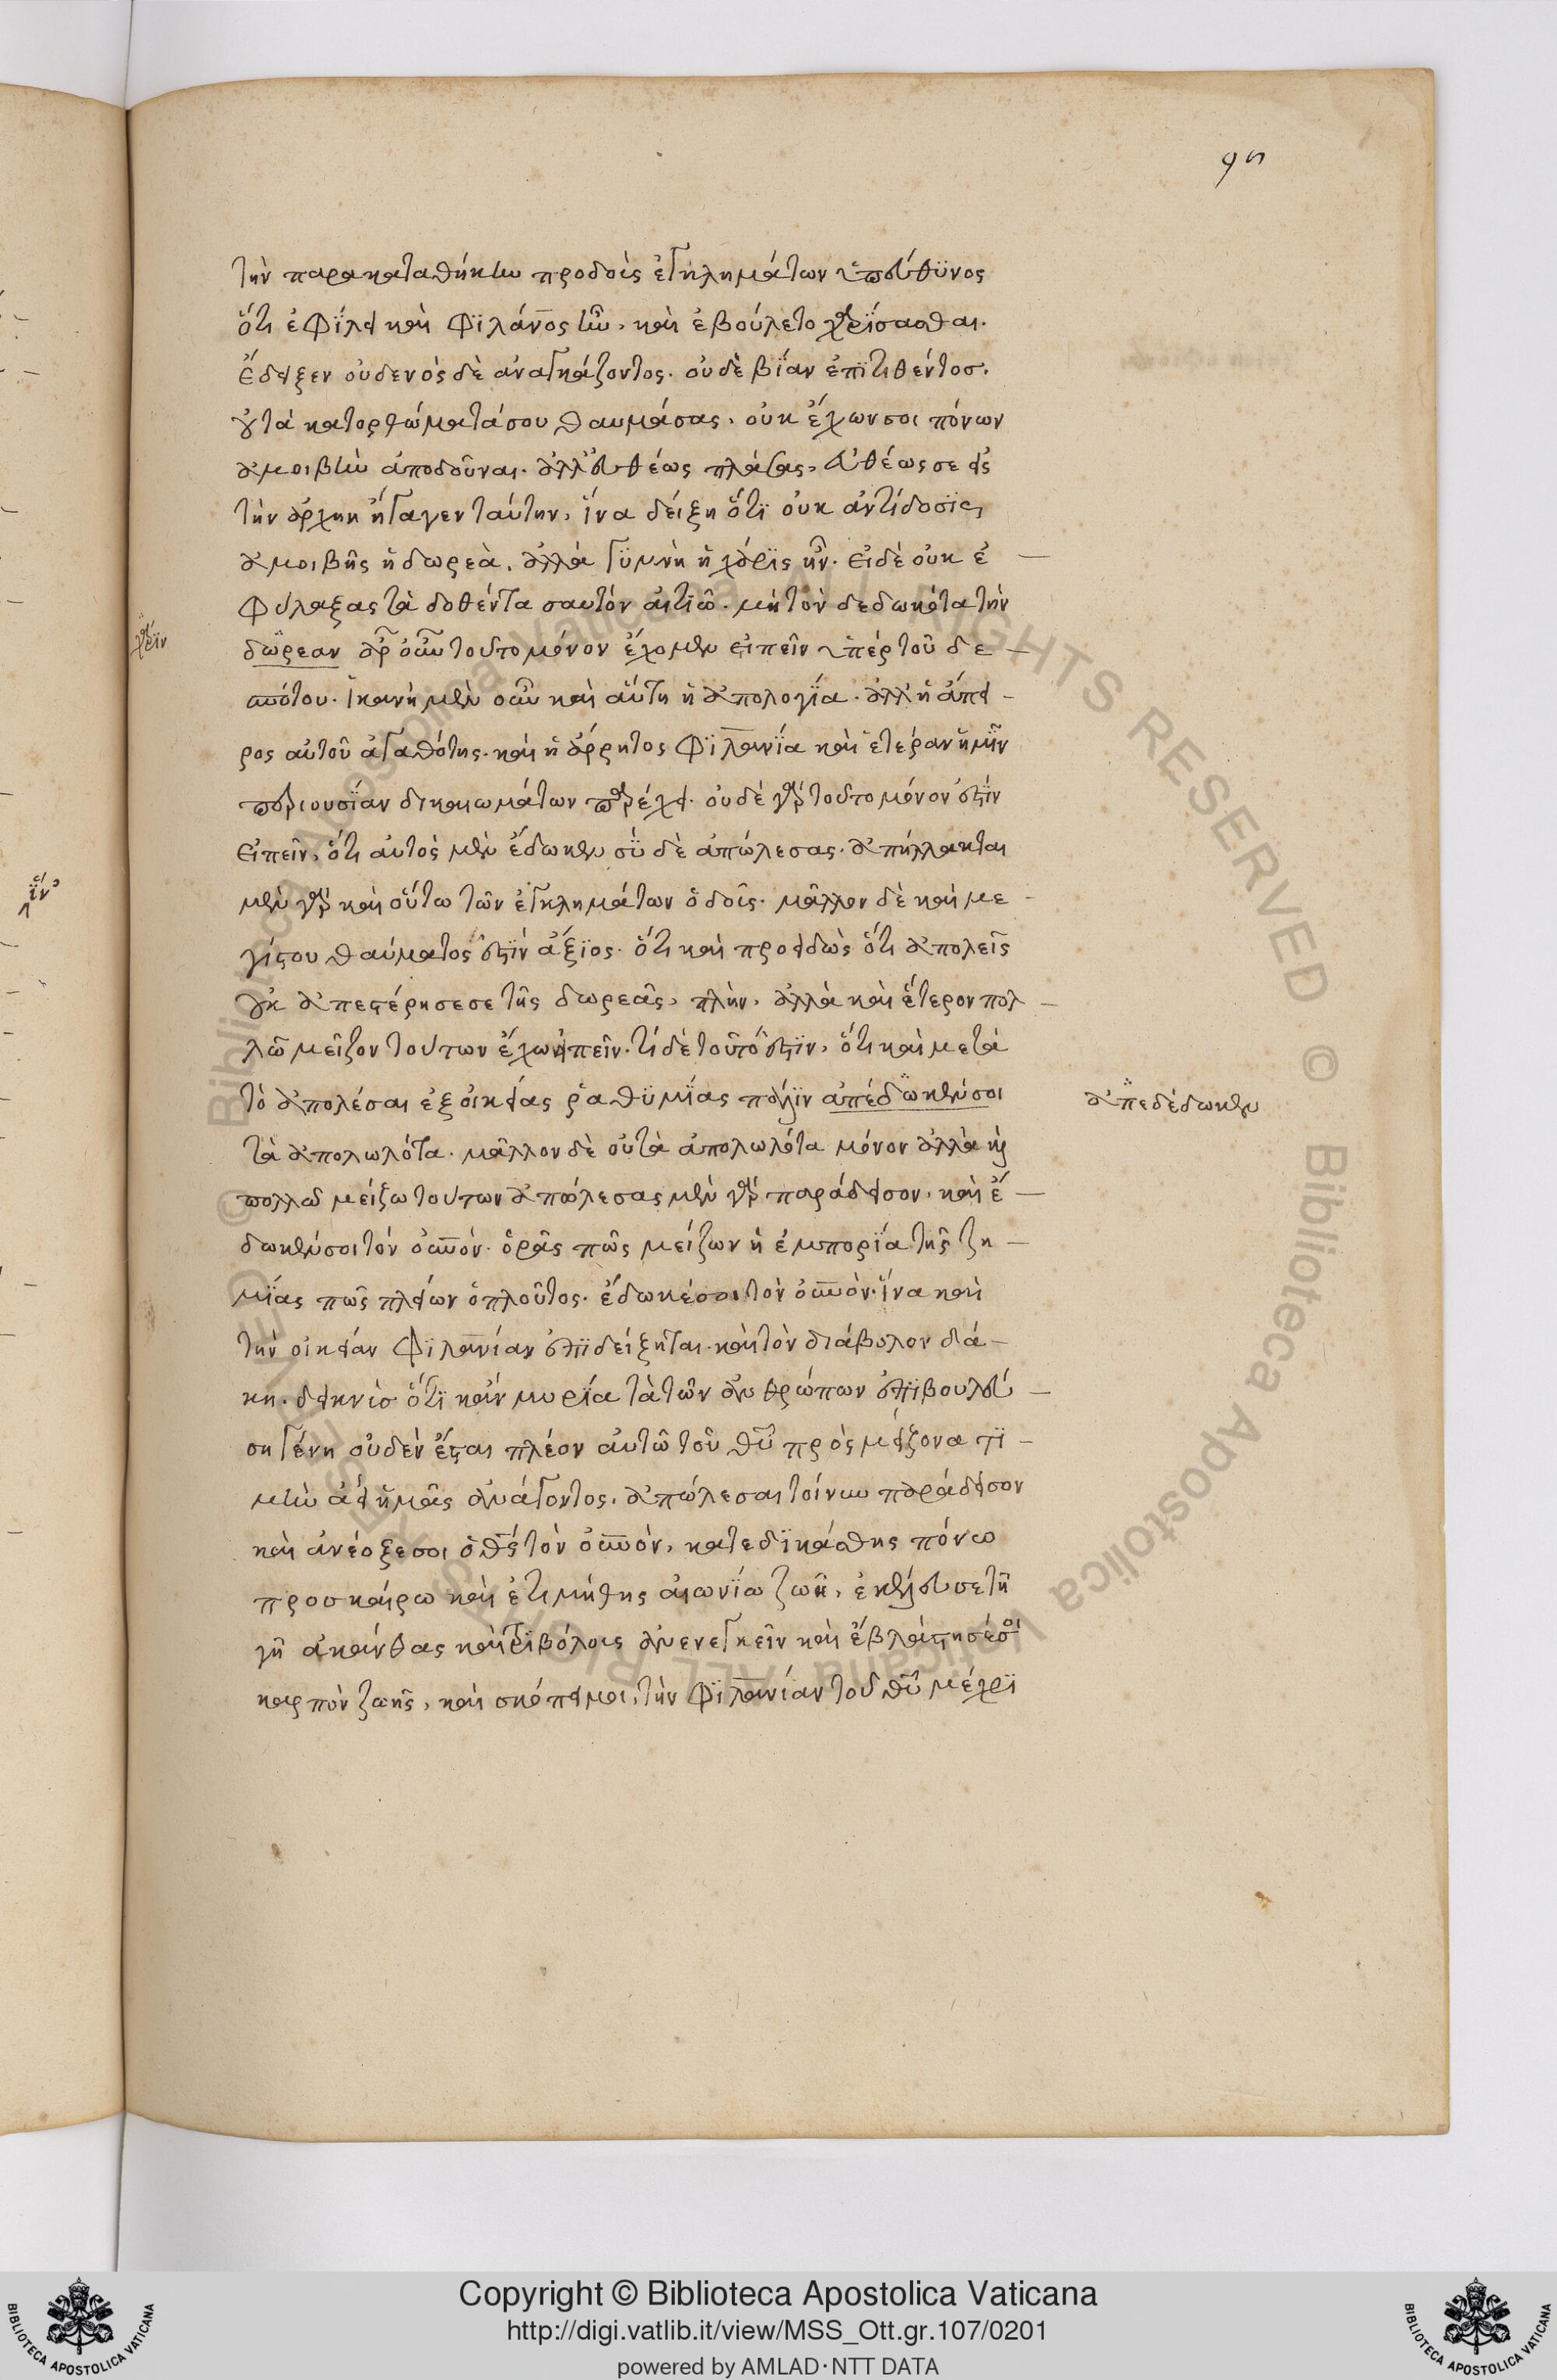 ϟη
τὴν παρακαταθήκην προδοὺς ἐγκλημάτων ὑπεύθϋνος
ὅτι ἐφΐλει καὶ φϊλάν̅ος ἦν, καὶ ἐβούλετο χαρΐσασθαι.
ἔδειξεν οὐδενὸς δὲ ἀναγκάζοντος. οὐδὲ βΐαν ἐπϊτιθέντοσ.
οὐ τὰ κατορθώματά σου θαυμάσας, οὐκ ἔχων σοι πόνων
ἀμοιβὴν ἀποδοῦναι. ἀλλ' εὐθέως πλάσας, εὐθέως σε εἰς
τὴν ἀρχὴν ἤγαγεν ταύτην, ἵνα δείξη ὅτϊ οὐκ ἀντίδοσϊς
ἀμοιβῆς ἡ δωρεὰ. ἀλλὰ γϋμνὴ ἡ χάρϊς ἦν. εἰ δὲ οὐκ ἐ
φύλαξας τὰ δοθέντα σαυτόν αἰτιῶ. μὴ τὸν δεδωκότα τὴν
χάρϊν
δώρεαν ἆρ' οὖν τοῦτο μόνον ἔχομεν εἰπεῖν ὑπὲρ τοῦ δε
σπότου. ἱκανὴ μὲν οὖν καὶ αὕτη ἡ ἀπολογΐα. ἀλλ' ἡ ἄπει
ρος αὐτοῦ ἀγαθότης. καὶ ἡ ἄρρητος φϊλαν̅ΐα καὶ ἑτεραν ἡμῖν
περιουσΐαν δικαιωμάτων παρέχει. οὐδὲ γὰρ τοῦτο μόνον ἐστϊν
εἰπεῖν, ὅτι αὐτὸς μὲν ἔδωκεν σΰ δὲ ἀπώλεσας. ἀπήλλακται
μὲν γὰρ καὶ οὕτω τῶν ἐγκλημάτων ὁ δοὺς. μᾶλλον δὲ καὶ με
γίστου θαύματος ἐστϊν ἄξϊος. ὅτι καὶ προειδὼς ὅτι ἀπολεῖς
οὐκ ἀπεστέρησε σε τῆς δωρεᾶς, πλὴν, ἀλλὰ καὶ ἕτερον πολ
λῶ μεῖζον τούτων ἔχω εἰπεῖν. τί δὲ τοῦτό ἐστϊν, ὅτι καὶ μετὰ
τὸ ἀπολέσαι ἐξ οἰκείας ῥαθϋμΐας πάλϊν ἀπέδωκεν σοι
ἀπεδέδωκεν
τὰ ἀπολωλότα. μᾶλλον δὲ οὐ τὰ ἀπολωλότα μόνον ἀλλὰ καὶ
πολλῶ μείζω τούτων ἀπώλεσας μὲν γὰρ παράδεισον, καὶ ἔ
δωκεν σοι τὸν ου̅νον. ὁρᾶς πῶς μείζων ἡ ἐμπορΐα τῆς ζη
μΐας πῶς πλείων ὁ πλοῦτος. ἔδωκέ σοι τὸν ου̅νον. ἵνα καὶ
τὴν οἰκείαν φϊλαν̅ίαν ἐπϊδείξηται. καὶ τὸν διάβολον δά
κη. δεικνὺσ ὅτϊ κἂν μυρία τὰ τῶν ἀνθρώπων ἐπϊβουλεύ
ση γένη οὐδὲν ἔσται πλέον αὐτῶ τοῦ θυ̅ πρὸς μείζονα τϊ
μὴν ἀεὶ ἡμᾶς ἀνάγοντος. ἀπώλεσας τοίνυν παράδεισον
καὶ ἀνέωξε σοι ὁ θς̅ τὸν ου̅νον, κατεδϊκάσθης πόνω
προσκαίρω καὶ ἐτιμήθης αἰωνΐω ζωῆ, ἐκέλευσε τῆ
γῆ ἀκάνθας καὶ τρϊβόλους ἀνενεγκεῖν καὶ ἐβλάστησέ σοι
καρπὸν ζωῆς, καὶ σκόπει μοι, τὴν φϊλαν̅ίαν τοῦ θυ̅ μέχρϊ
Copyright © Biblioteca Apostolica Vaticana
http://digi.vatlib.it/view/MSS_Ott.gr.107/0201
powered by AMLAD·NTT DATA